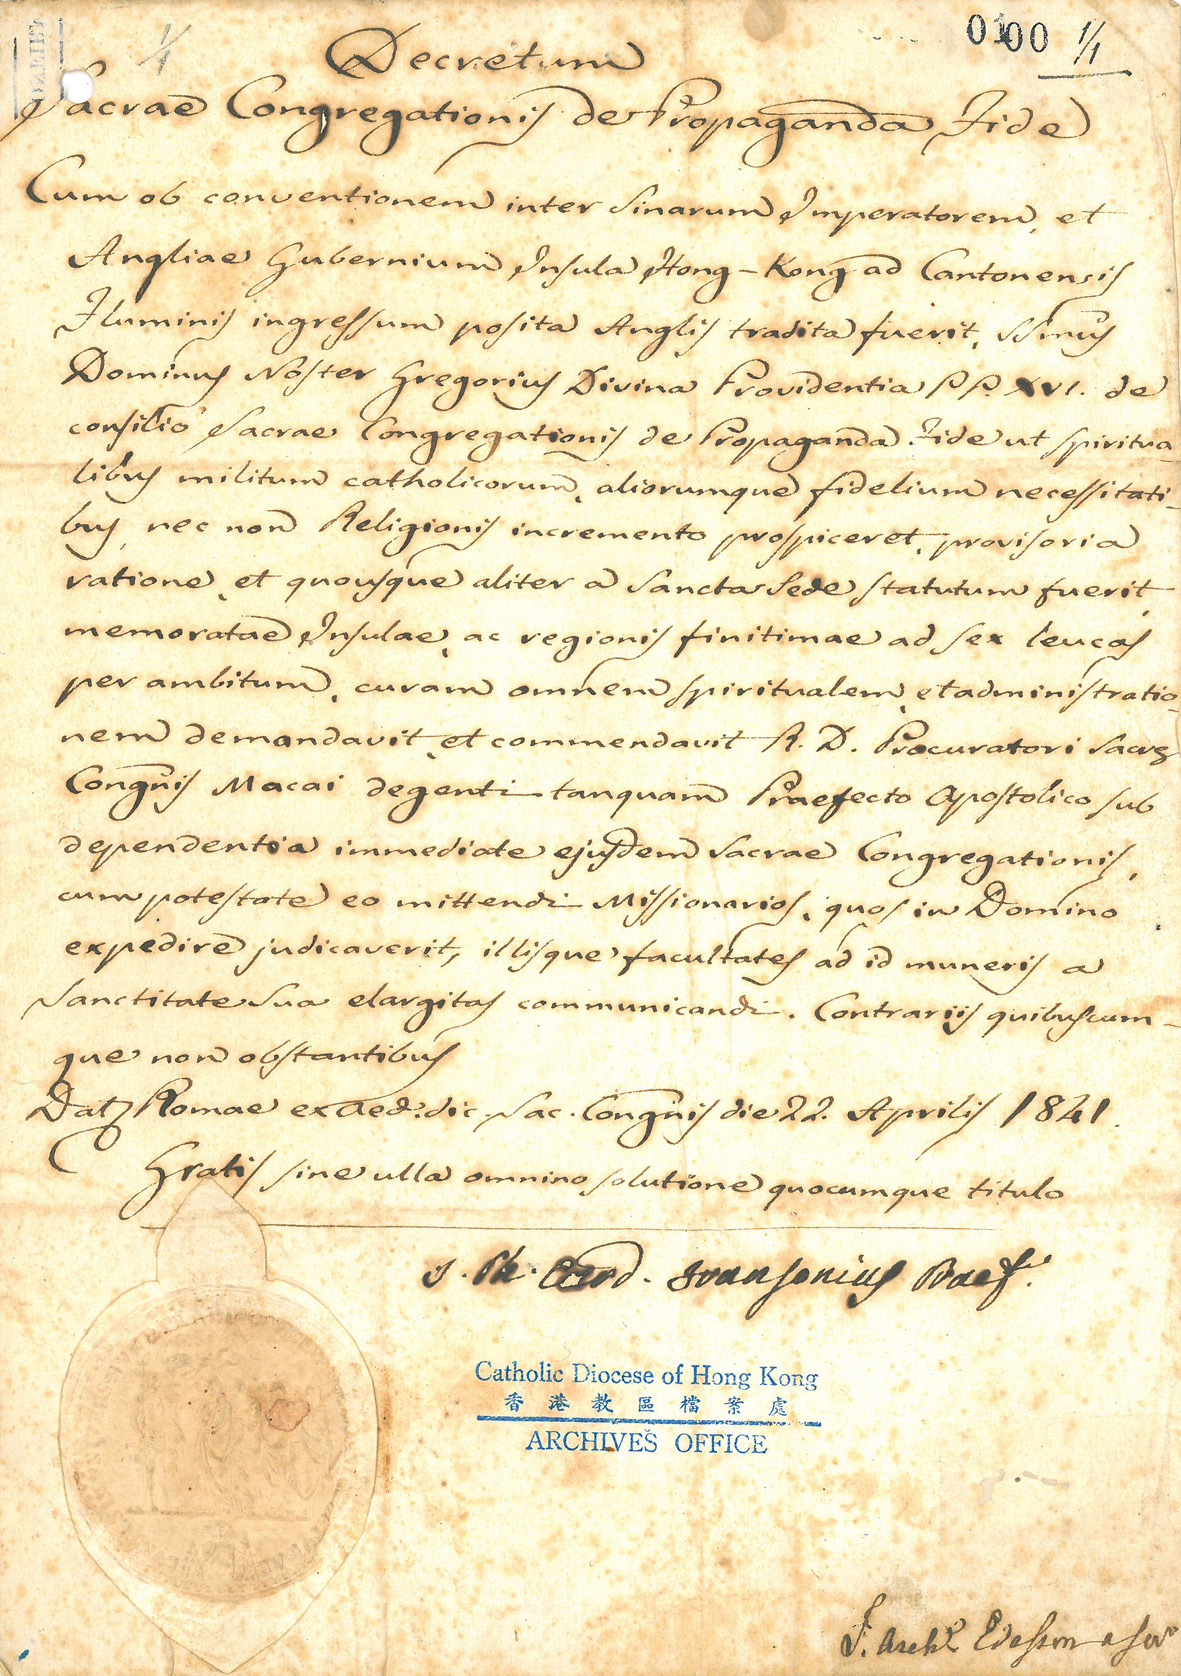 0100 1/1
1/1
Decretum
Sacrae Congregationis de Propaganda Fide
Cum ob conventionem inter Sinarum Imperatorem, et
Angliae Gubernium Insula Hong-Kong ad Cantonensis
Fluminis ingressum posita Anglis tradita fuerit, SSmus
Dominus Noster Gregorius Divina Providentia PP. XVI. de
consilio Sacrae Congregationis de Propaganda Fide ut spiritua-
libus militum catholicorum, aliorumque fidelium necessitati-
bus, nec non Religionis incremento prospiceret, provisoria
ratione, et quousque aliter a Sancta Sede statutum fuerit,
memoratae Insulae, ac regionis finitimae ad sex leucas
per ambitum, curam omnem spiritualem, et administratio-
nem demandavit, et commendavit R. D. Procuratori Sacrae
Congnis Macai degenti tanquam Praefecto Apostolico sub
dependentia immediate ejusdem Sacrae Congregationis,
cum potestate eo mittendi Missionarios, quos in Domino
expedire judicaverit, illisque facultates ad id muneris a
Sanctitate Sua elargitas communicandi. Contrariis quibuscum-
que non obstantibus
Dat Romae ex Aed. dic. Sac. Congnis die 22. Aprilis 1841.
Gratis sine ulla omnino solutione quocumque titulo
J. Ph. Card. Fransonius Praef.
Catholic Diocese of Hong Kong
香港教區檔案處
ARCHIVES OFFICE